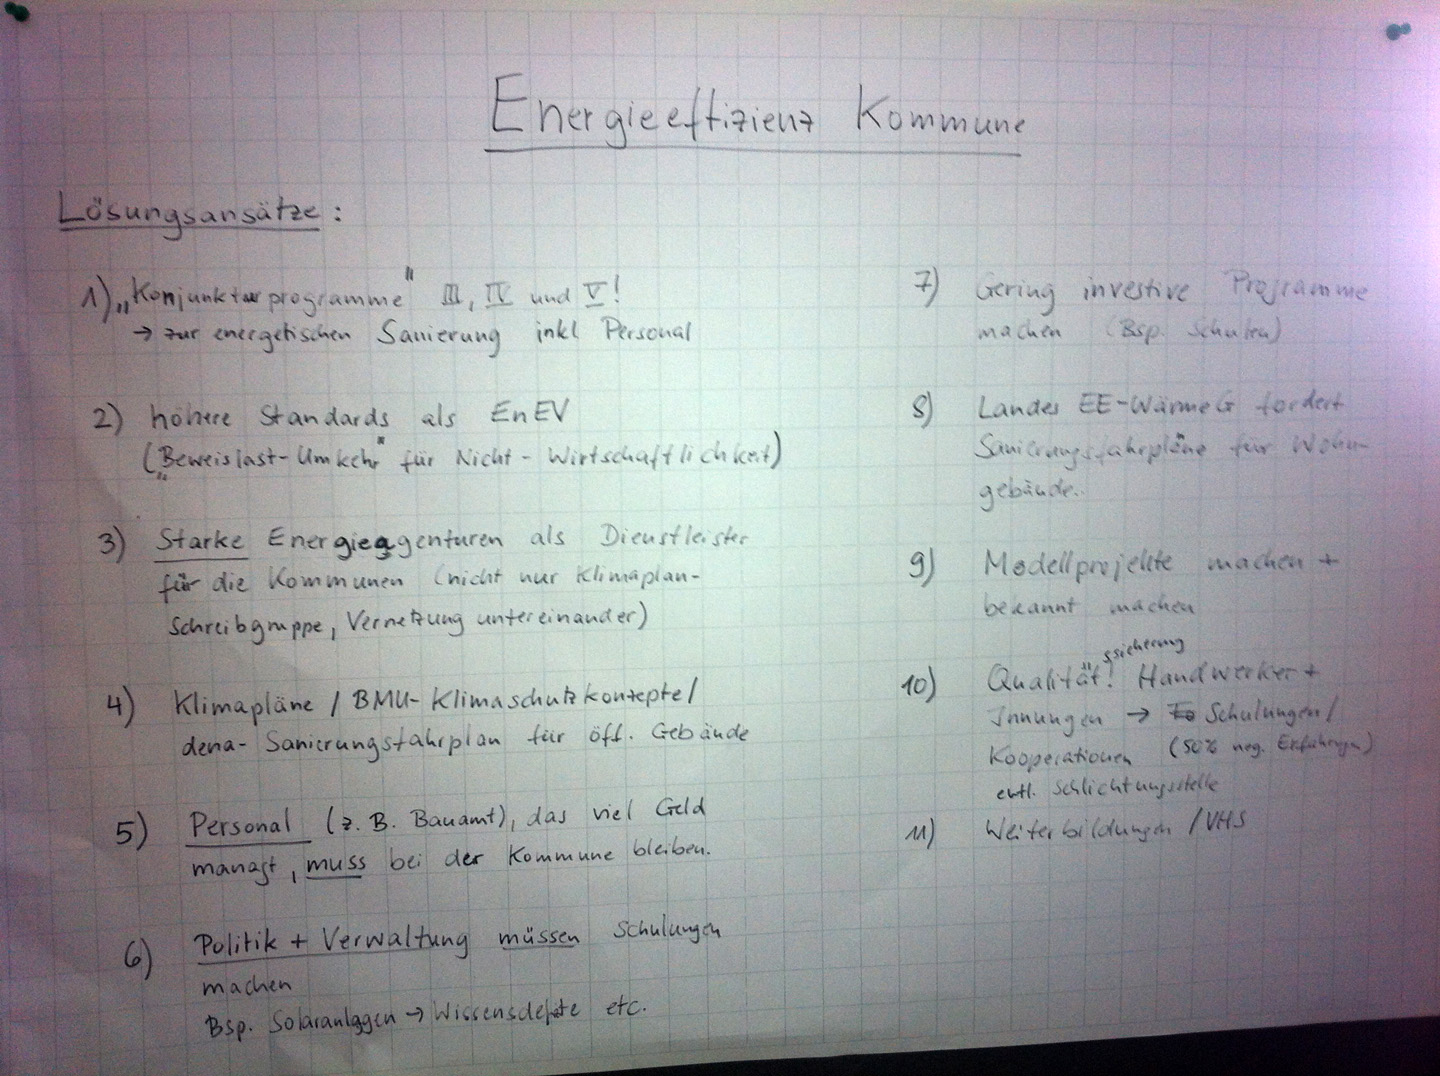 Energieeffizienz Kommune
Lösungsansätze:
1) „Konjunkturprogramme" III, IV und V!
→ zur energetischen Sanierung inkl Personal
2) höhere Standards als EnEV
(„Beweislast-Umkehr" für Nicht-Wirtschaftlichkeit)
3) Starke Energieagenturen als Dienstleister
für die Kommunen (nicht nur Klimaplan-
schreibgruppe, Vernetzung untereinander)
4) Klimapläne / BMU-Klimaschutzkonzepte/
dena-Sanierungsfahrplan für öff. Gebäude
5) Personal (z.B. Bauamt), das viel Geld
managt, muss bei der Kommune bleiben.
6) Politik + Verwaltung müssen Schulungen
machen
Bsp. Solaranlagen → Wissensdefizite etc.
7) Gering investive Programme
machen (Bsp. Schulen)
8) Landes EE-WärmeG fordert
Sanierungsfahrpläne für Wohn-
gebäude..
9) Modellprojekte machen +
bekannt machen
10) Qualität!ssicherung Handwerker +
Innungen → Schulungen/
Kooperationen (50% neg. Erfahrungen)
evtl. Schlichtungsstelle
11) Weiterbildungen / VHS